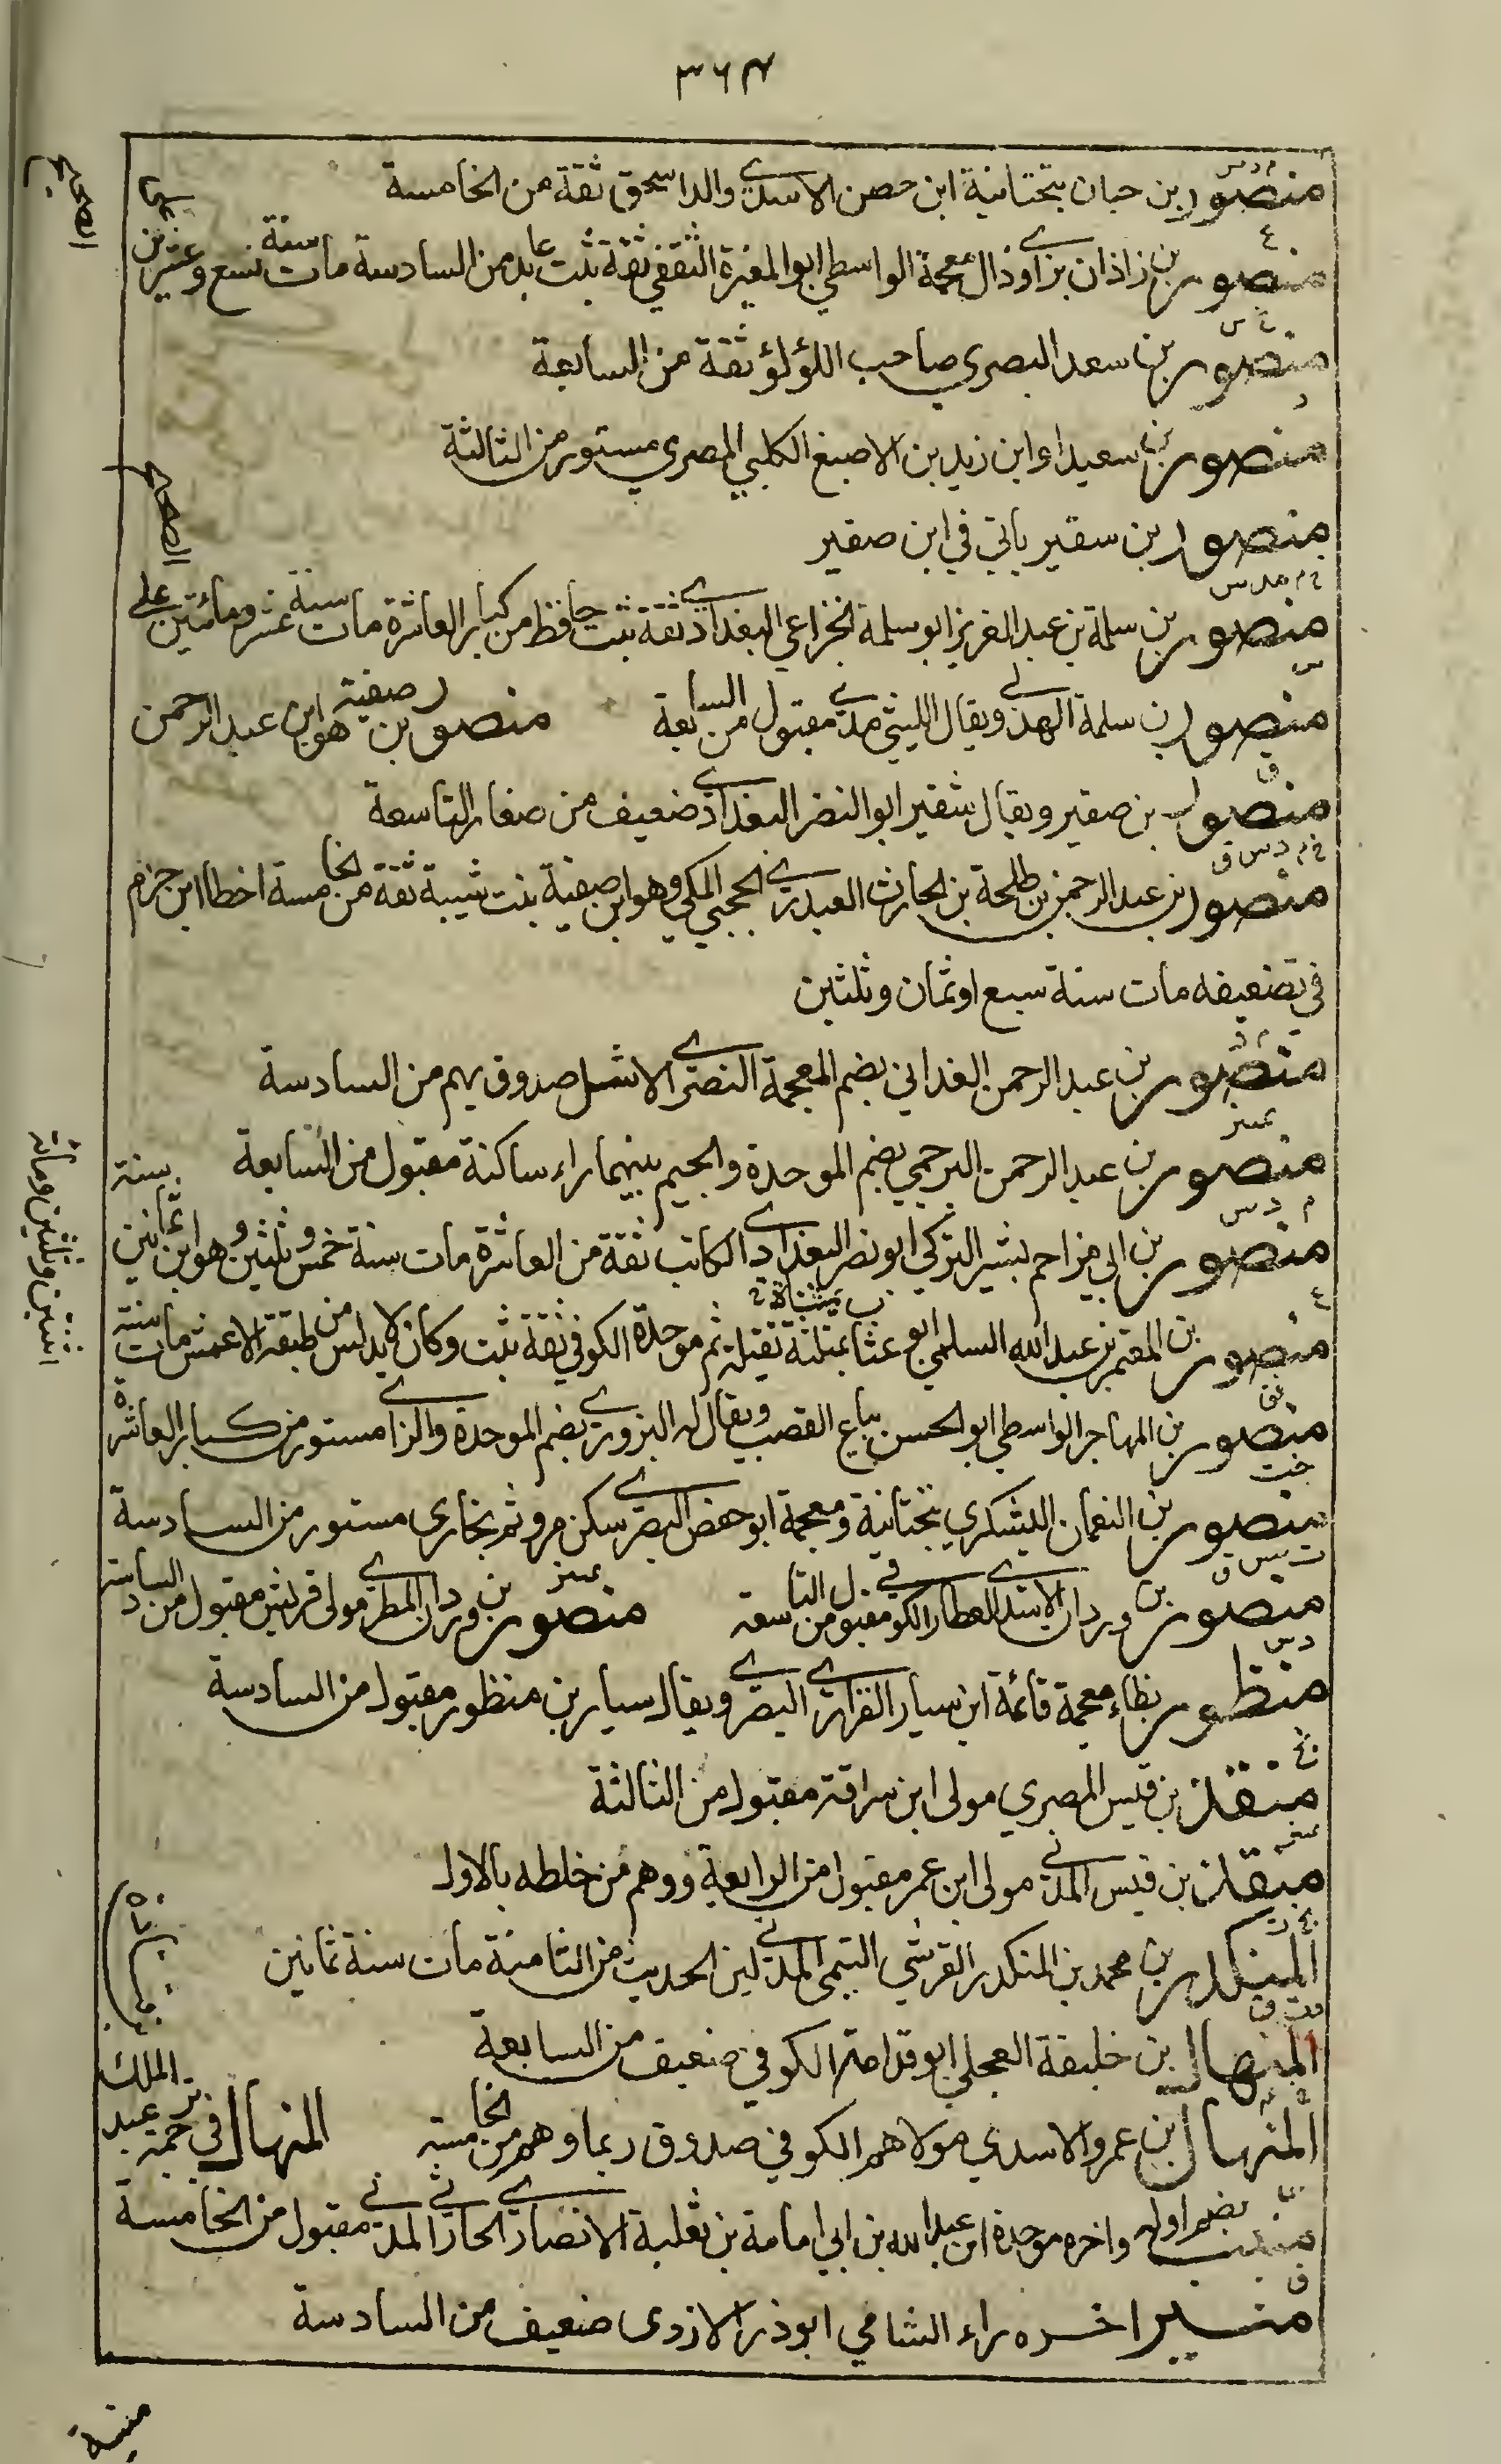 ٣٦٣
م د س
منصور بن حيان بتحتانية ابن حصن الاسدي والد اسحق ثقة من الخامسة
٤
منصور بن زاذان بزاء وذال معجمة الواسطي ابو المغيرة الثقفي ثقة ثبت عابد من السادسة مات سنة تسع وعشرين على
الصحيح
خ س
منصور بن سعد البصري صاحب اللؤلؤ ثقة من السابعة
د
منصور بن سعيد او ابن زيد بن الاصبغ الكلبي المصري مستور من الثالثة
منصور بن سقير ياتي في ابن صقير
خ م مد س
منصور بن سلمة بن عبد العزيز ابو سلمة الخزاعي البغدادي ثقة ثبت حافظ من كبار العاشرة مات سنة عشر ومائتين على
الصحيح
س
منصور بن سلمة الهذلي ويقال الليثي مدني مقبول من السابعة منصور بن صفية هو ابن عبد الرحمن
ق
منصور بن صقير ويقال شقير ابو النضر البغدادي ضعيف من صغار التاسعة
خ م د س ق
منصور بن عبد الرحمن بن طلحة بن الحارث العبدري الحجبي المكي وهو ابن صفية بنت شيبة ثقة من الخامسة اخطا ابن حزم
في تضعيفه مات سنة سبع او ثمان وثلثين
م د
منصور بن عبد الرحمن الغداني بضم المعجمة النصري الاشل صدوق يهم من السادسة
تمييز
منصور بن عبد الرحمن البرجمي بضم الموحدة والجيم بينهما راء ساكنة مقبول من السابعة
م د س
منصور بن ابي مزاحم بشير التركي ابو نصر البغدادي الكاتب ثقة من العاشرة مات سنة خمس وثلثين وهو ابن ثمانين سنة
٤
منصور بن المعتمر بن عبد الله السلمي ابو عثاب بمثناة ثقيلة ثم موحدة الكوفي ثقة ثبت وكان لا يدلس من طبقة الاعمش مات سنة
اثنتين وثلثين ومائة
فق
منصور بن المهاجر الواسطي ابو الحسن بياع القصب ويقال له البزوري بضم الموحدة والزا مستور من كبار العاشرة
خت
منصور بن النعمان اليشكري بتحتانية ومعجمة ابو حفص البصري سكن مرو ثم بخارى مستور من السادسة
ت س ق
منصور بن وردان الاسدي العطار الكوفي مقبول من التاسعة تمييز منصور بن وردان المطري مولى قريش مقبول من السادسة
د س
منظور بظاء معجمة قائمة ابن سيار الفزاري البصري ويقال سيار بن منظور مقبول من السادسة
منقذ بن قيس المصري مولى ابن سراقة مقبول من الثالثة
منقذ بن قيس المدني مولى ابن عمر مقبول من الرابعة ووهم من خلطه بالاول
المنكدر بن محمد بن المنكدر القرشي التيمي المدني لين الحديث من الثامنة مات سنة ثمانين
المنهال بن خليفة العجلي ابو قدامة الكوفي ضعيف من السابعة
المنهال بن عمرو الاسدي مولاهم الكوفي صدوق ربما وهم من الخامسة المنهال في ترجمة عبد الملك
منيب بضم اوله واخره موحدة ابن عبد الله بن ابي امامة بن ثعلبة الانصاري الحارثي المدني مقبول من الخامسة
ق
منير اخره راء الشامي ابو ذر الازدي ضعيف من السادسة
منية